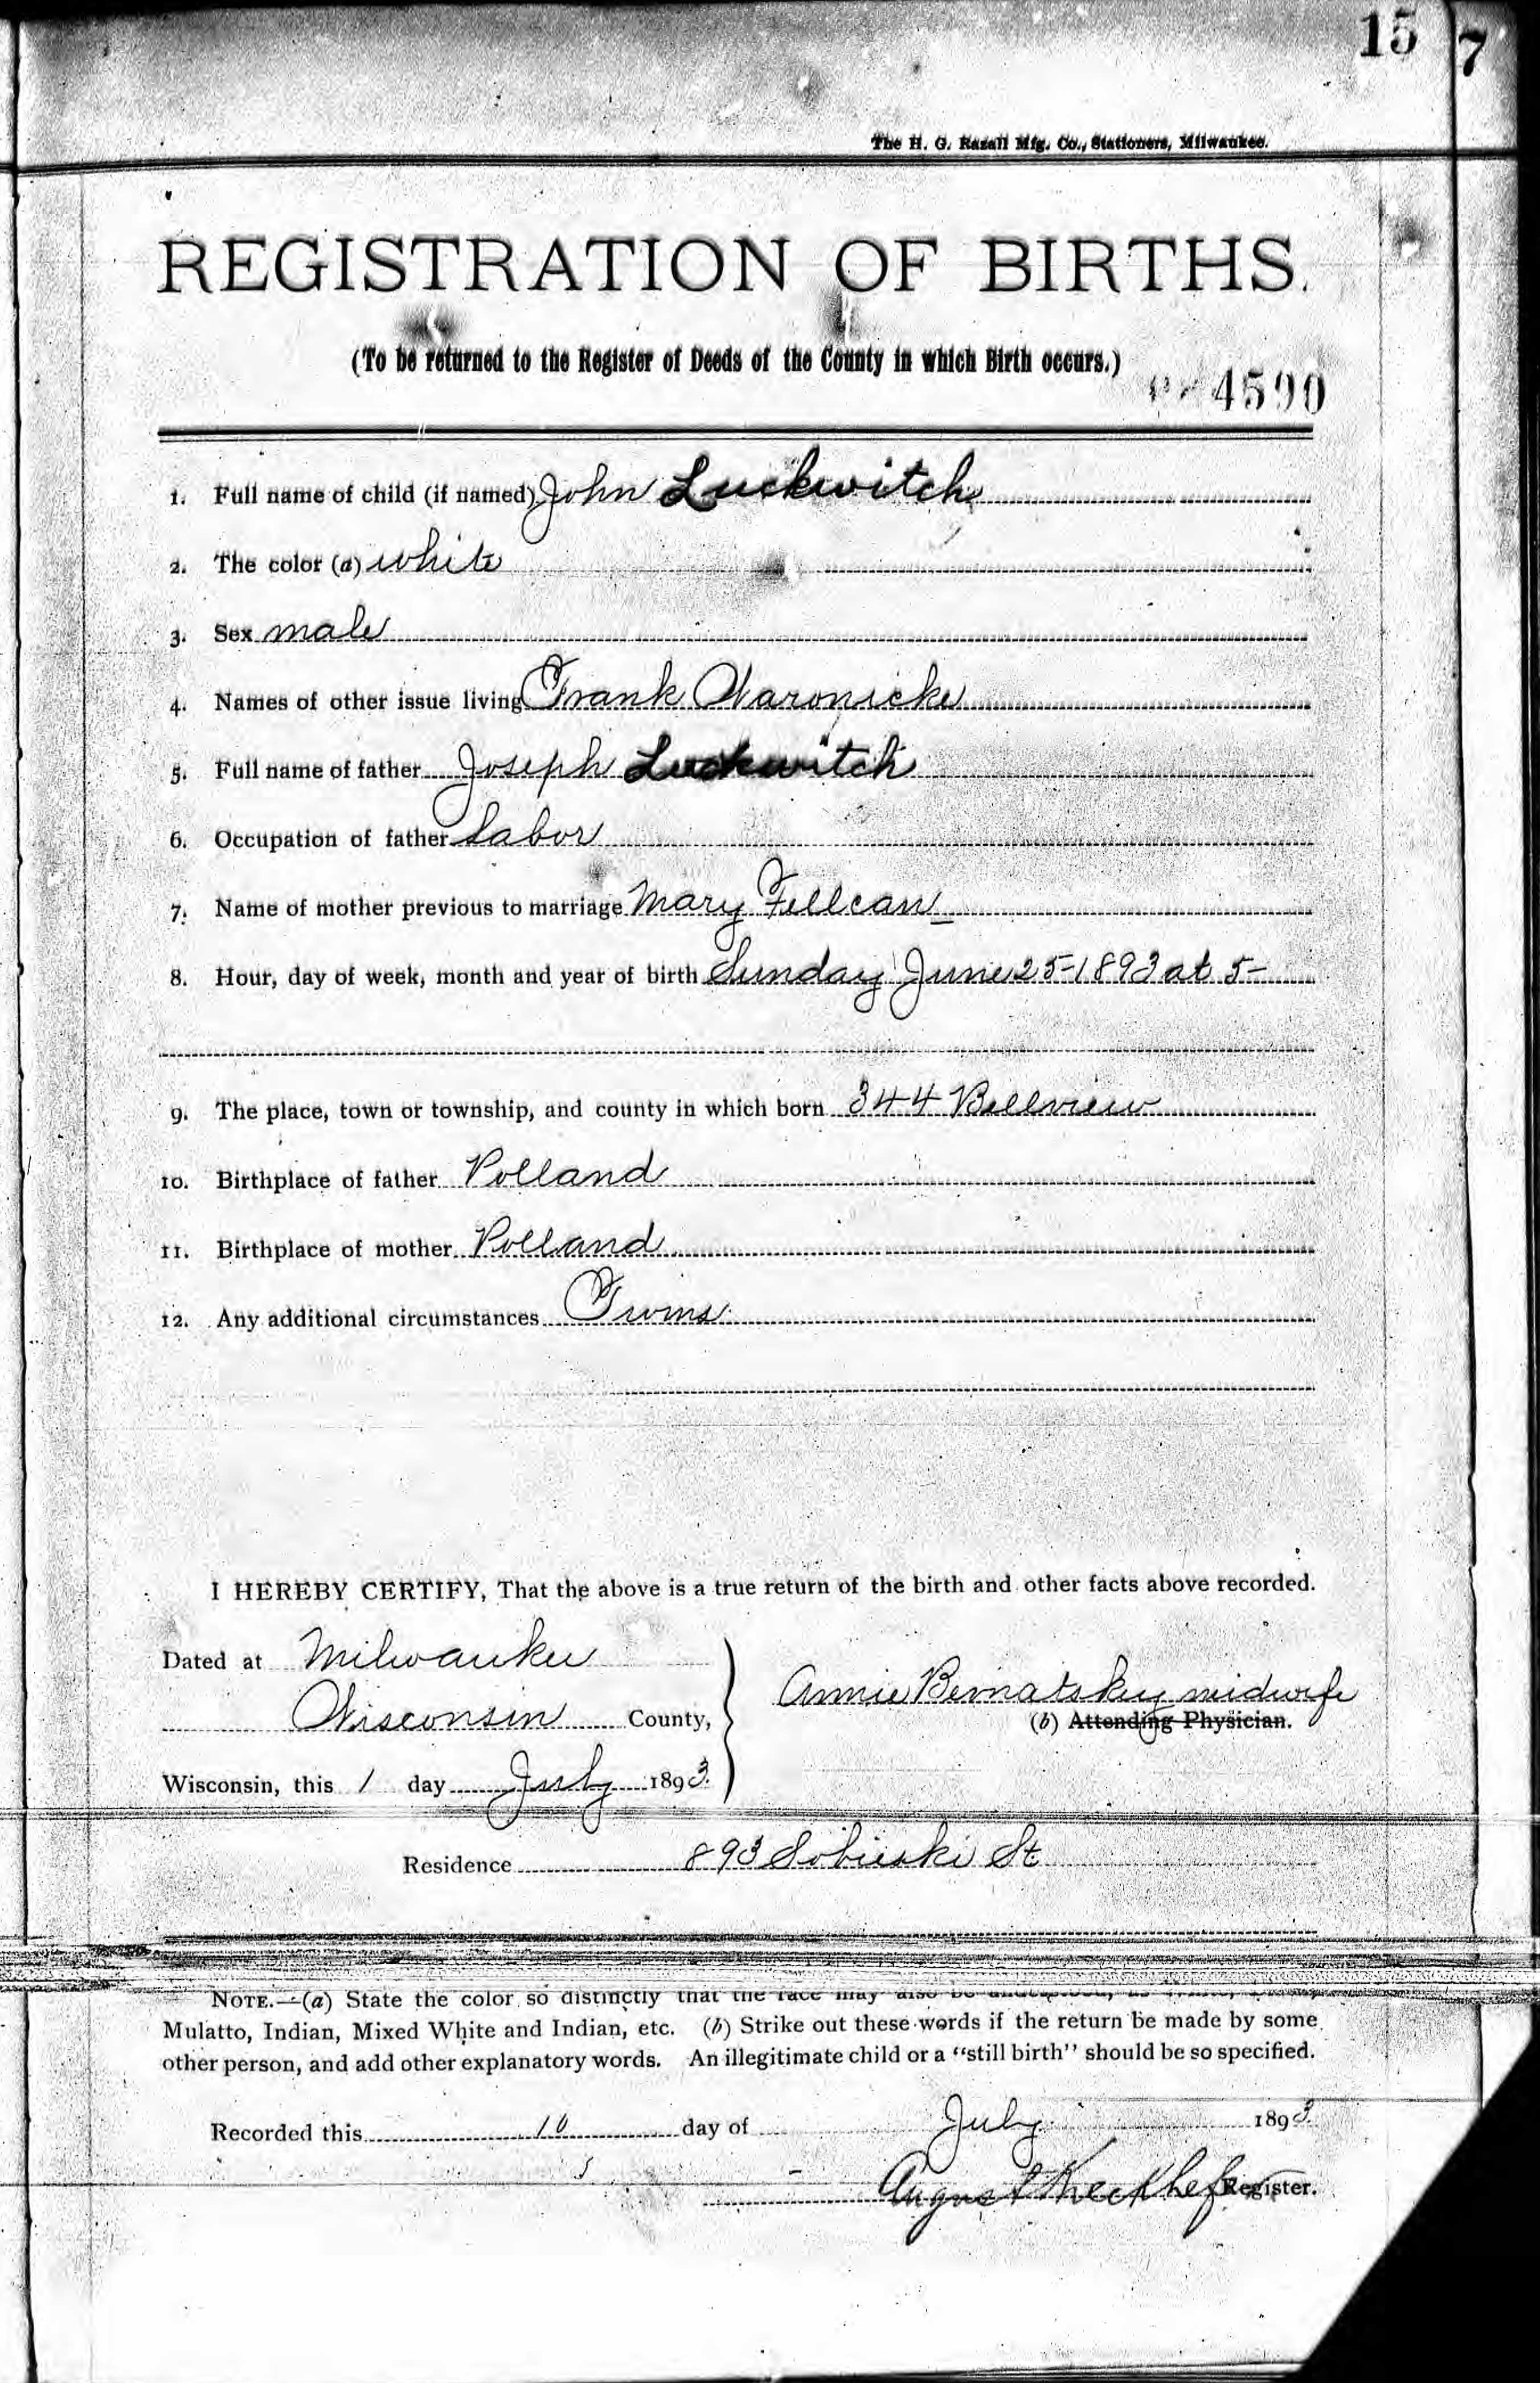 15 7
The H. G. Razall Mfg. Co., Stationers, Milwaukee.
REGISTRATION OF BIRTHS.
(To be returned to the Register of Deeds of the County in which Birth occurs.)
4590
1. Full name of child (if named) John Luckwitch
2. The color (a) white
3. Sex male
4. Names of other issue living Frank Waronicke
5. Full name of father Joseph Luckwitch
6. Occupation of father Labor
7. Name of mother previous to marriage Mary Fellcan
8. Hour, day of week, month and year of birth Sunday June 25-1893 at 5-
9. The place, town or township, and county in which born 344 Bellview
10. Birthplace of father Polland
11. Birthplace of mother Polland
12. Any additional circumstances Twins
I HEREBY CERTIFY, That the above is a true return of the birth and other facts above recorded.
Dated at Milwaukee
Wisconsin County,
Annie Bernatskey midwife
(b) Attending Physician.
Wisconsin, this 1 day July 1893.
Residence 893 Sobieski St
NOTE.—(a) State the color so distinctly that the race may also be
Mulatto, Indian, Mixed White and Indian, etc. (b) Strike out these words if the return be made by some
other person, and add other explanatory words. An illegitimate child or a "still birth" should be so specified.
Recorded this 10 day of July 1893
August Register.